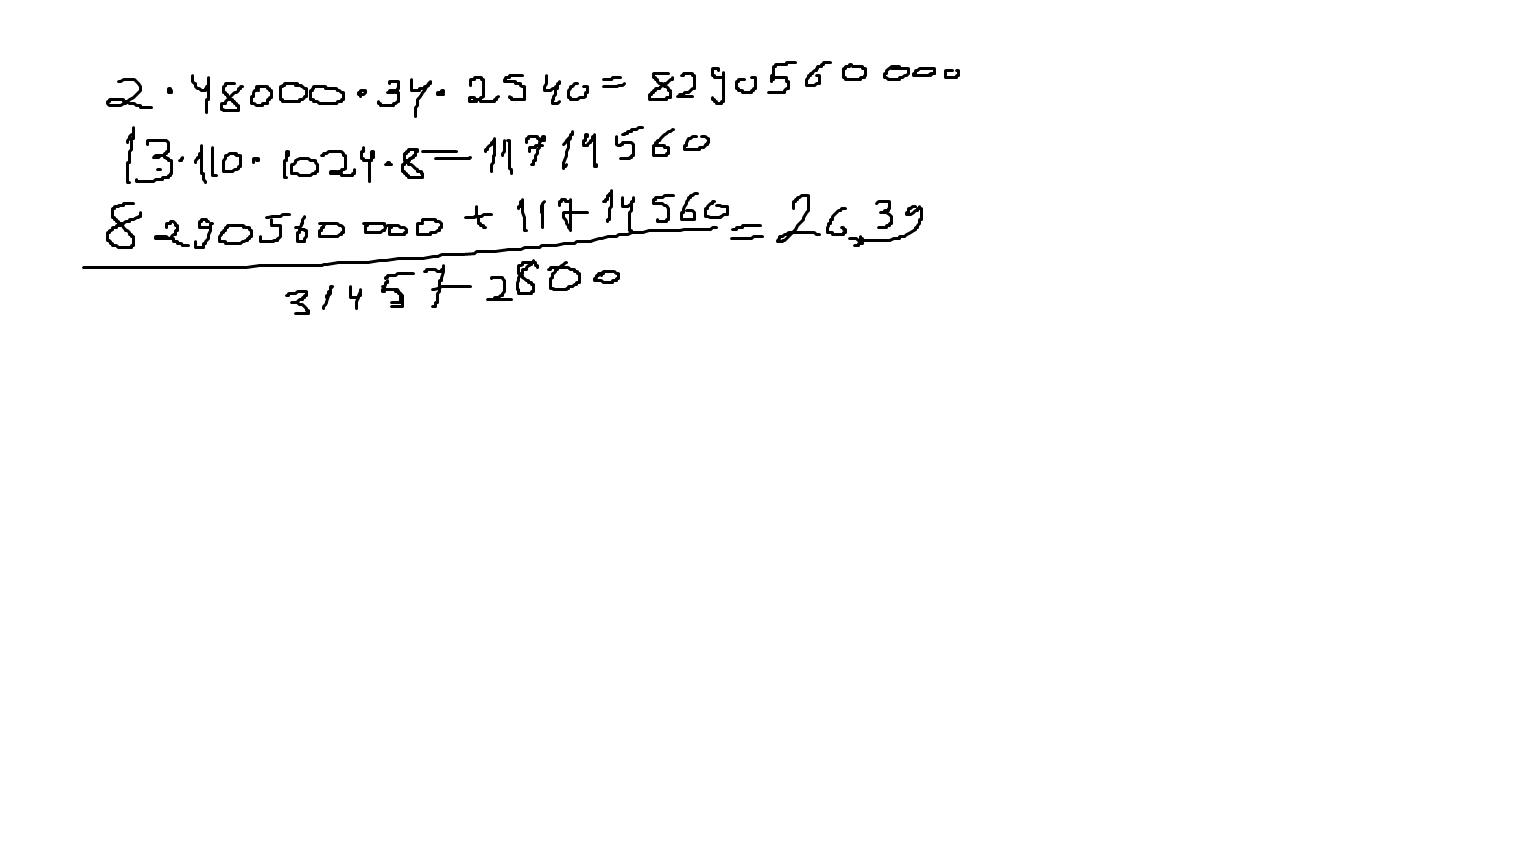 2·48000·34·2540=8290560000
13·110·1024·8=11714560
8290560000+11714560=26,39
314572800